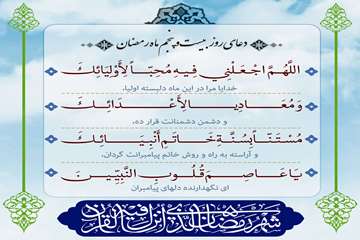 دعای روز بیست و پنجم ماه رمضان
اللَّهُمَّ اجْعَلْنِي فِيهِ مُحِبّاً لِأَوْلِيَائِكَ
خدایا مرا در این ماه دلبسته اولیا،
وَ مُعَادِياً لِأَعْدَائِكَ
و دشمن دشمنانت قرار ده،
مُسْتَنّاً بِسُنَّةِ خَاتَمِ أَنْبِيَائِكَ
و آراسته به راه و روش خاتم پیامبرانت گردان،
يَا عَاصِمَ قُلُوبِ النَّبِيِّينَ
ای نگهدارنده دلهای پیامبران
شهر رمضان الذی انزل فیه القرآن